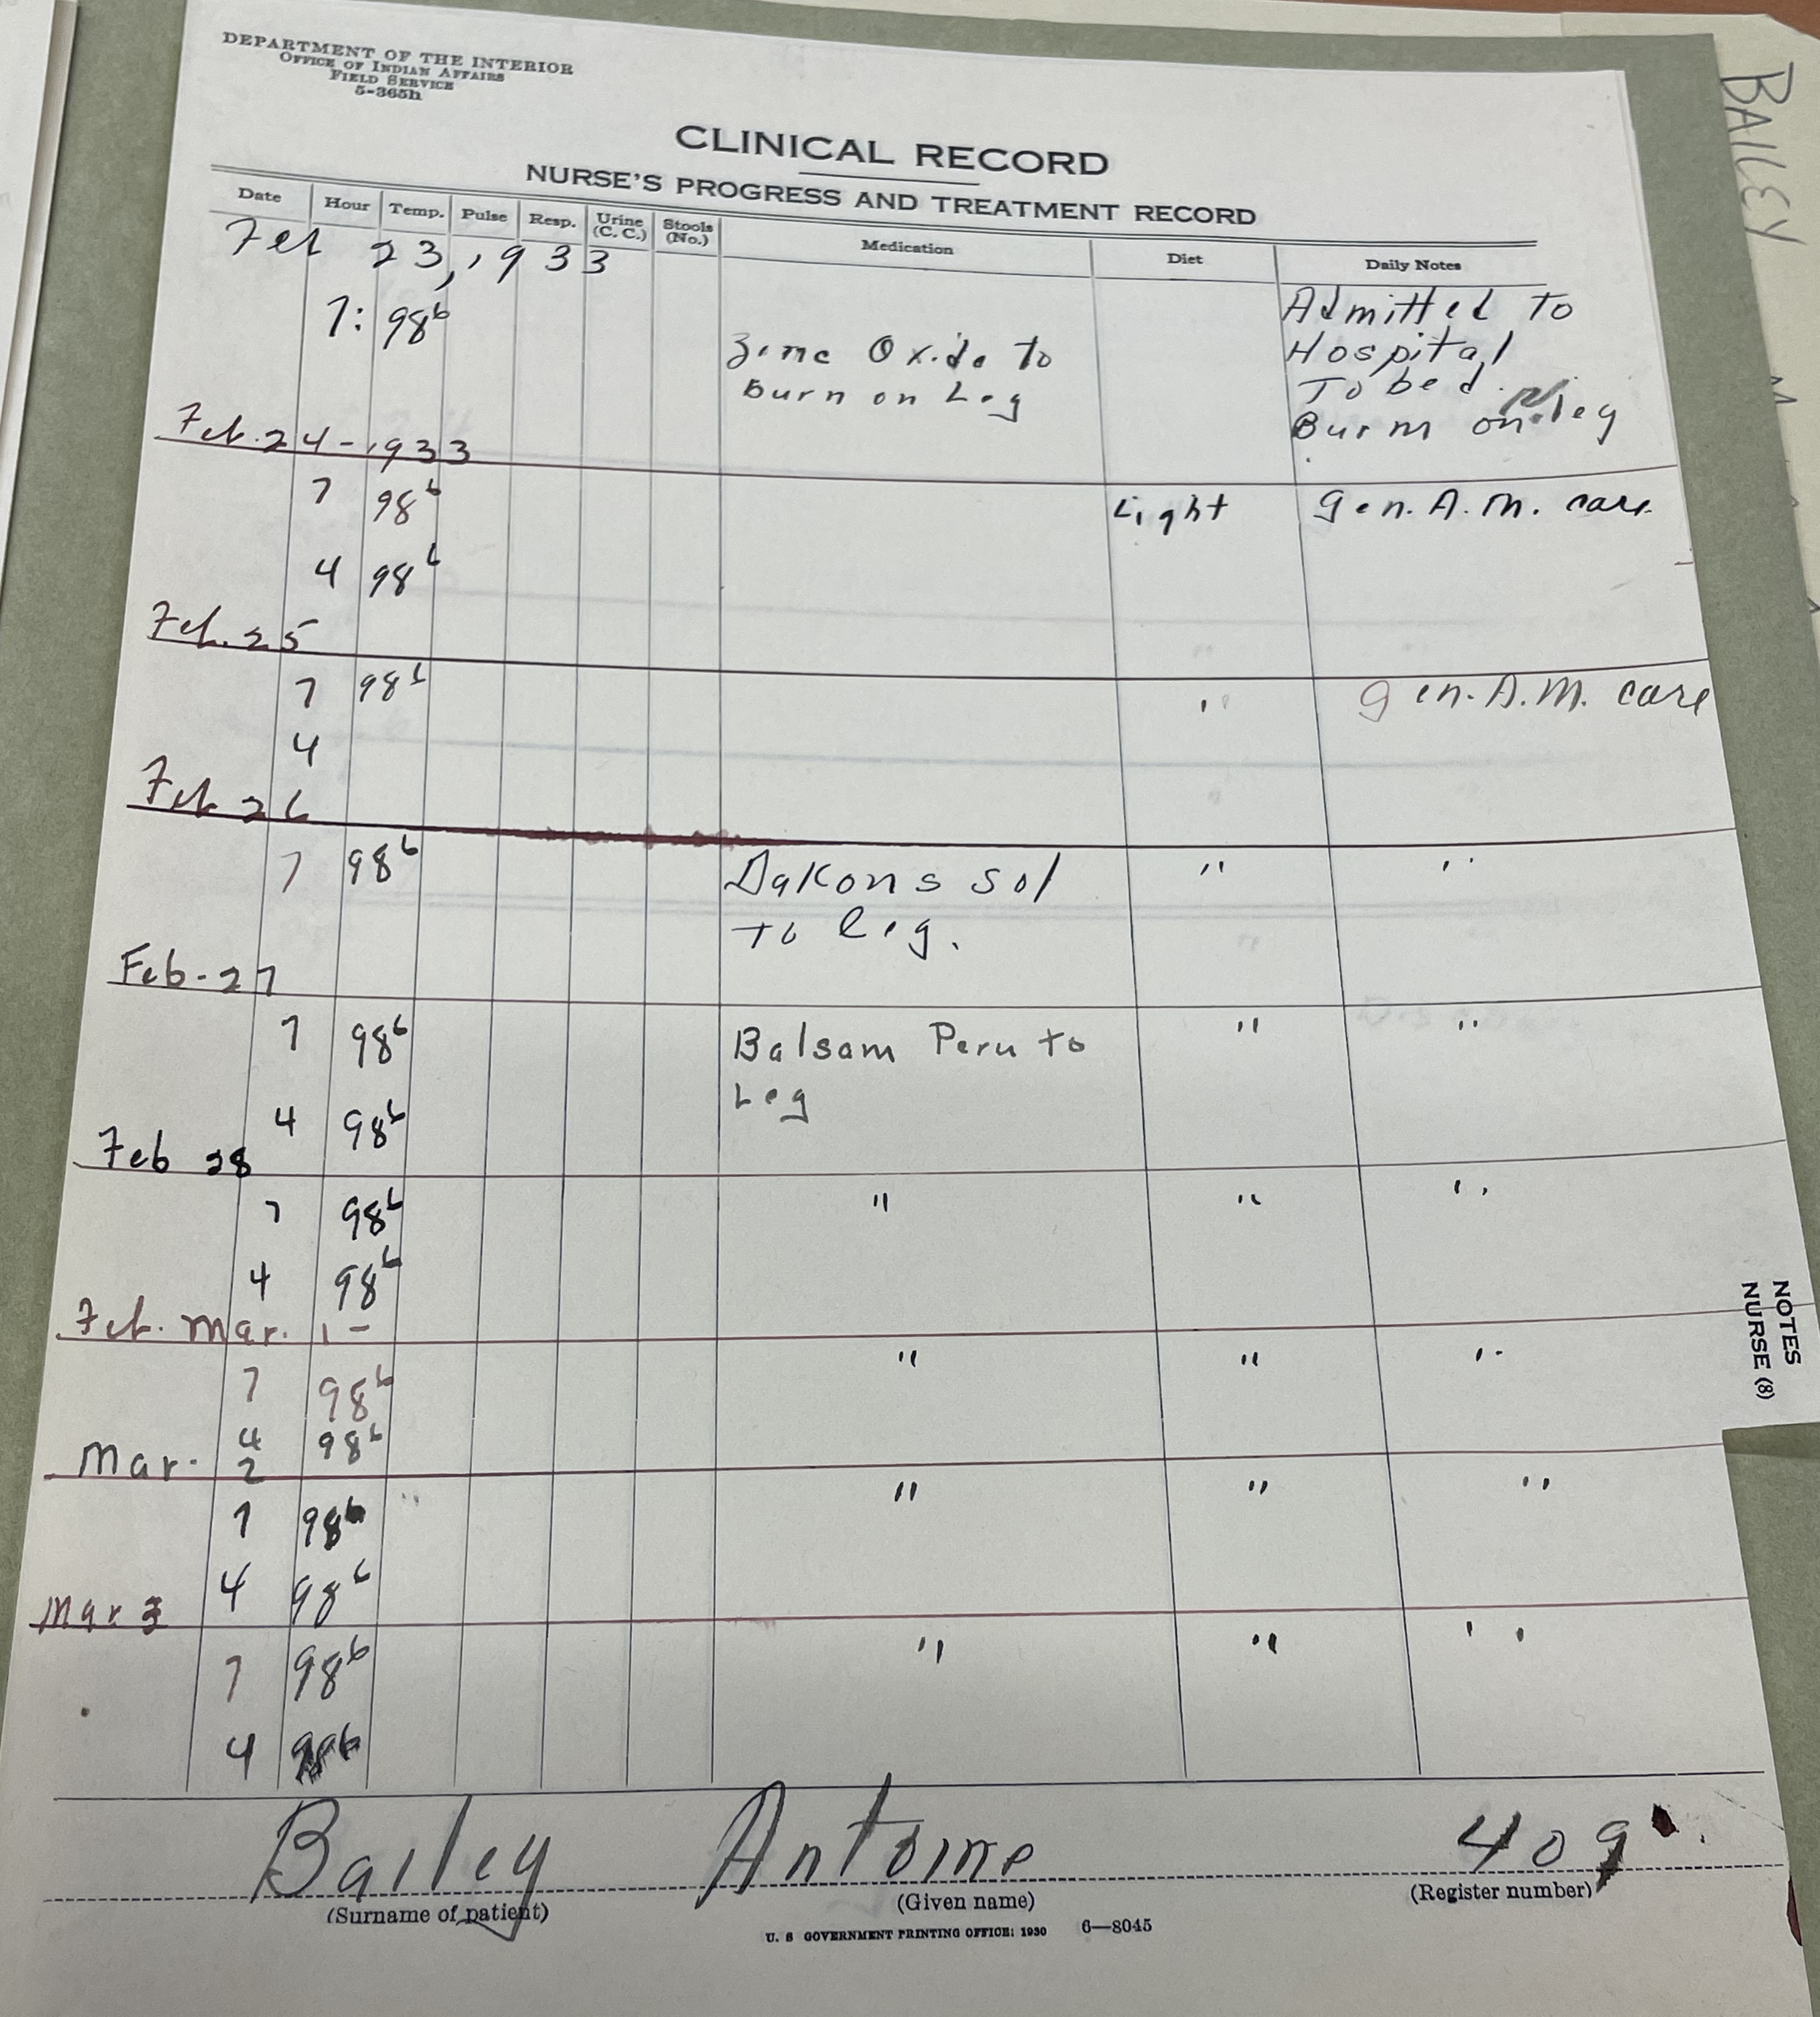 DEPARTMENT OF THE INTERIOR
OFFICE OF INDIAN AFFAIRS
FIELD SERVICE
5-365h
BAILEY
CLINICAL RECORD
NURSE'S PROGRESS AND TREATMENT RECORD
Date Hour Temp. Pulse Resp. Urine (C. C.) Stools (No.) Medication Diet Daily Notes
Feb 23, 1933
7: 98⁶ Admitted to
Zinc Oxide to Hospital
Burn on Leg To bed.
Burn on leg
Feb. 24-1933
7 98⁶ Light gen. A.M. care
4 98⁶
Feb. 25
7 98⁶ " gen. A.M. care
4
Feb 26
7 98⁶ Dakons sol " "
to leg.
Feb-27
7 98⁶ Balsam Peru to " "
4 98⁶ Leg
Feb 28
7 98⁶ " " "
4 98⁶
Feb. Mar. 1-
7 98⁶ " " "
4 98⁶
Mar. 2
7 98⁶ " " " "
4 98⁶
Mar 3
7 98⁶ " " "
4 98⁶
NOTES
NURSE (8)
Bailey Antoine 409
(Surname of patient) (Given name) (Register number)
U. S GOVERNMENT PRINTING OFFICE: 1930 6—8045